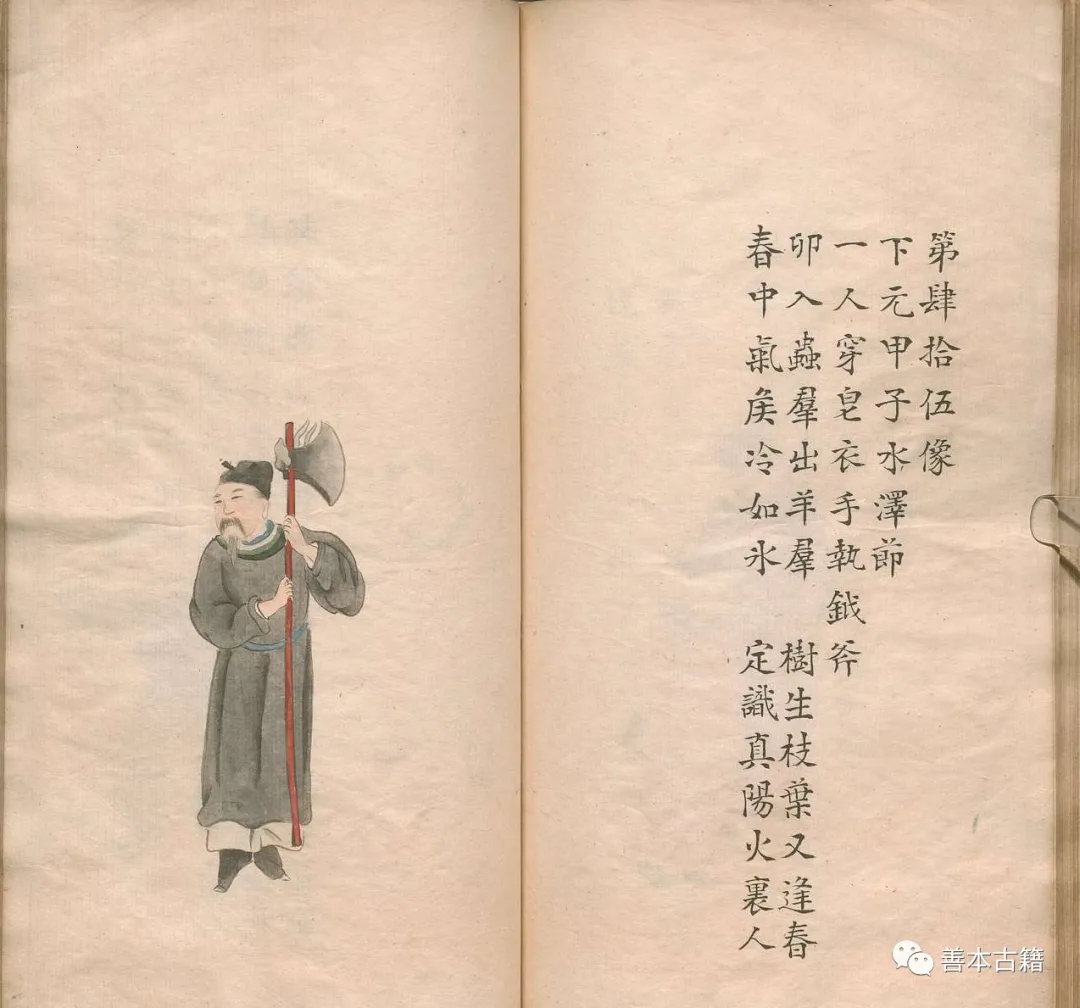 第肆拾伍像
下元甲子水澤節
一人穿皂衣手執鉞斧
卯入蟲羣出羊羣　樹生枝葉又逢春
春中氣矦冷如氷　定識真陽火裏人
善本古籍